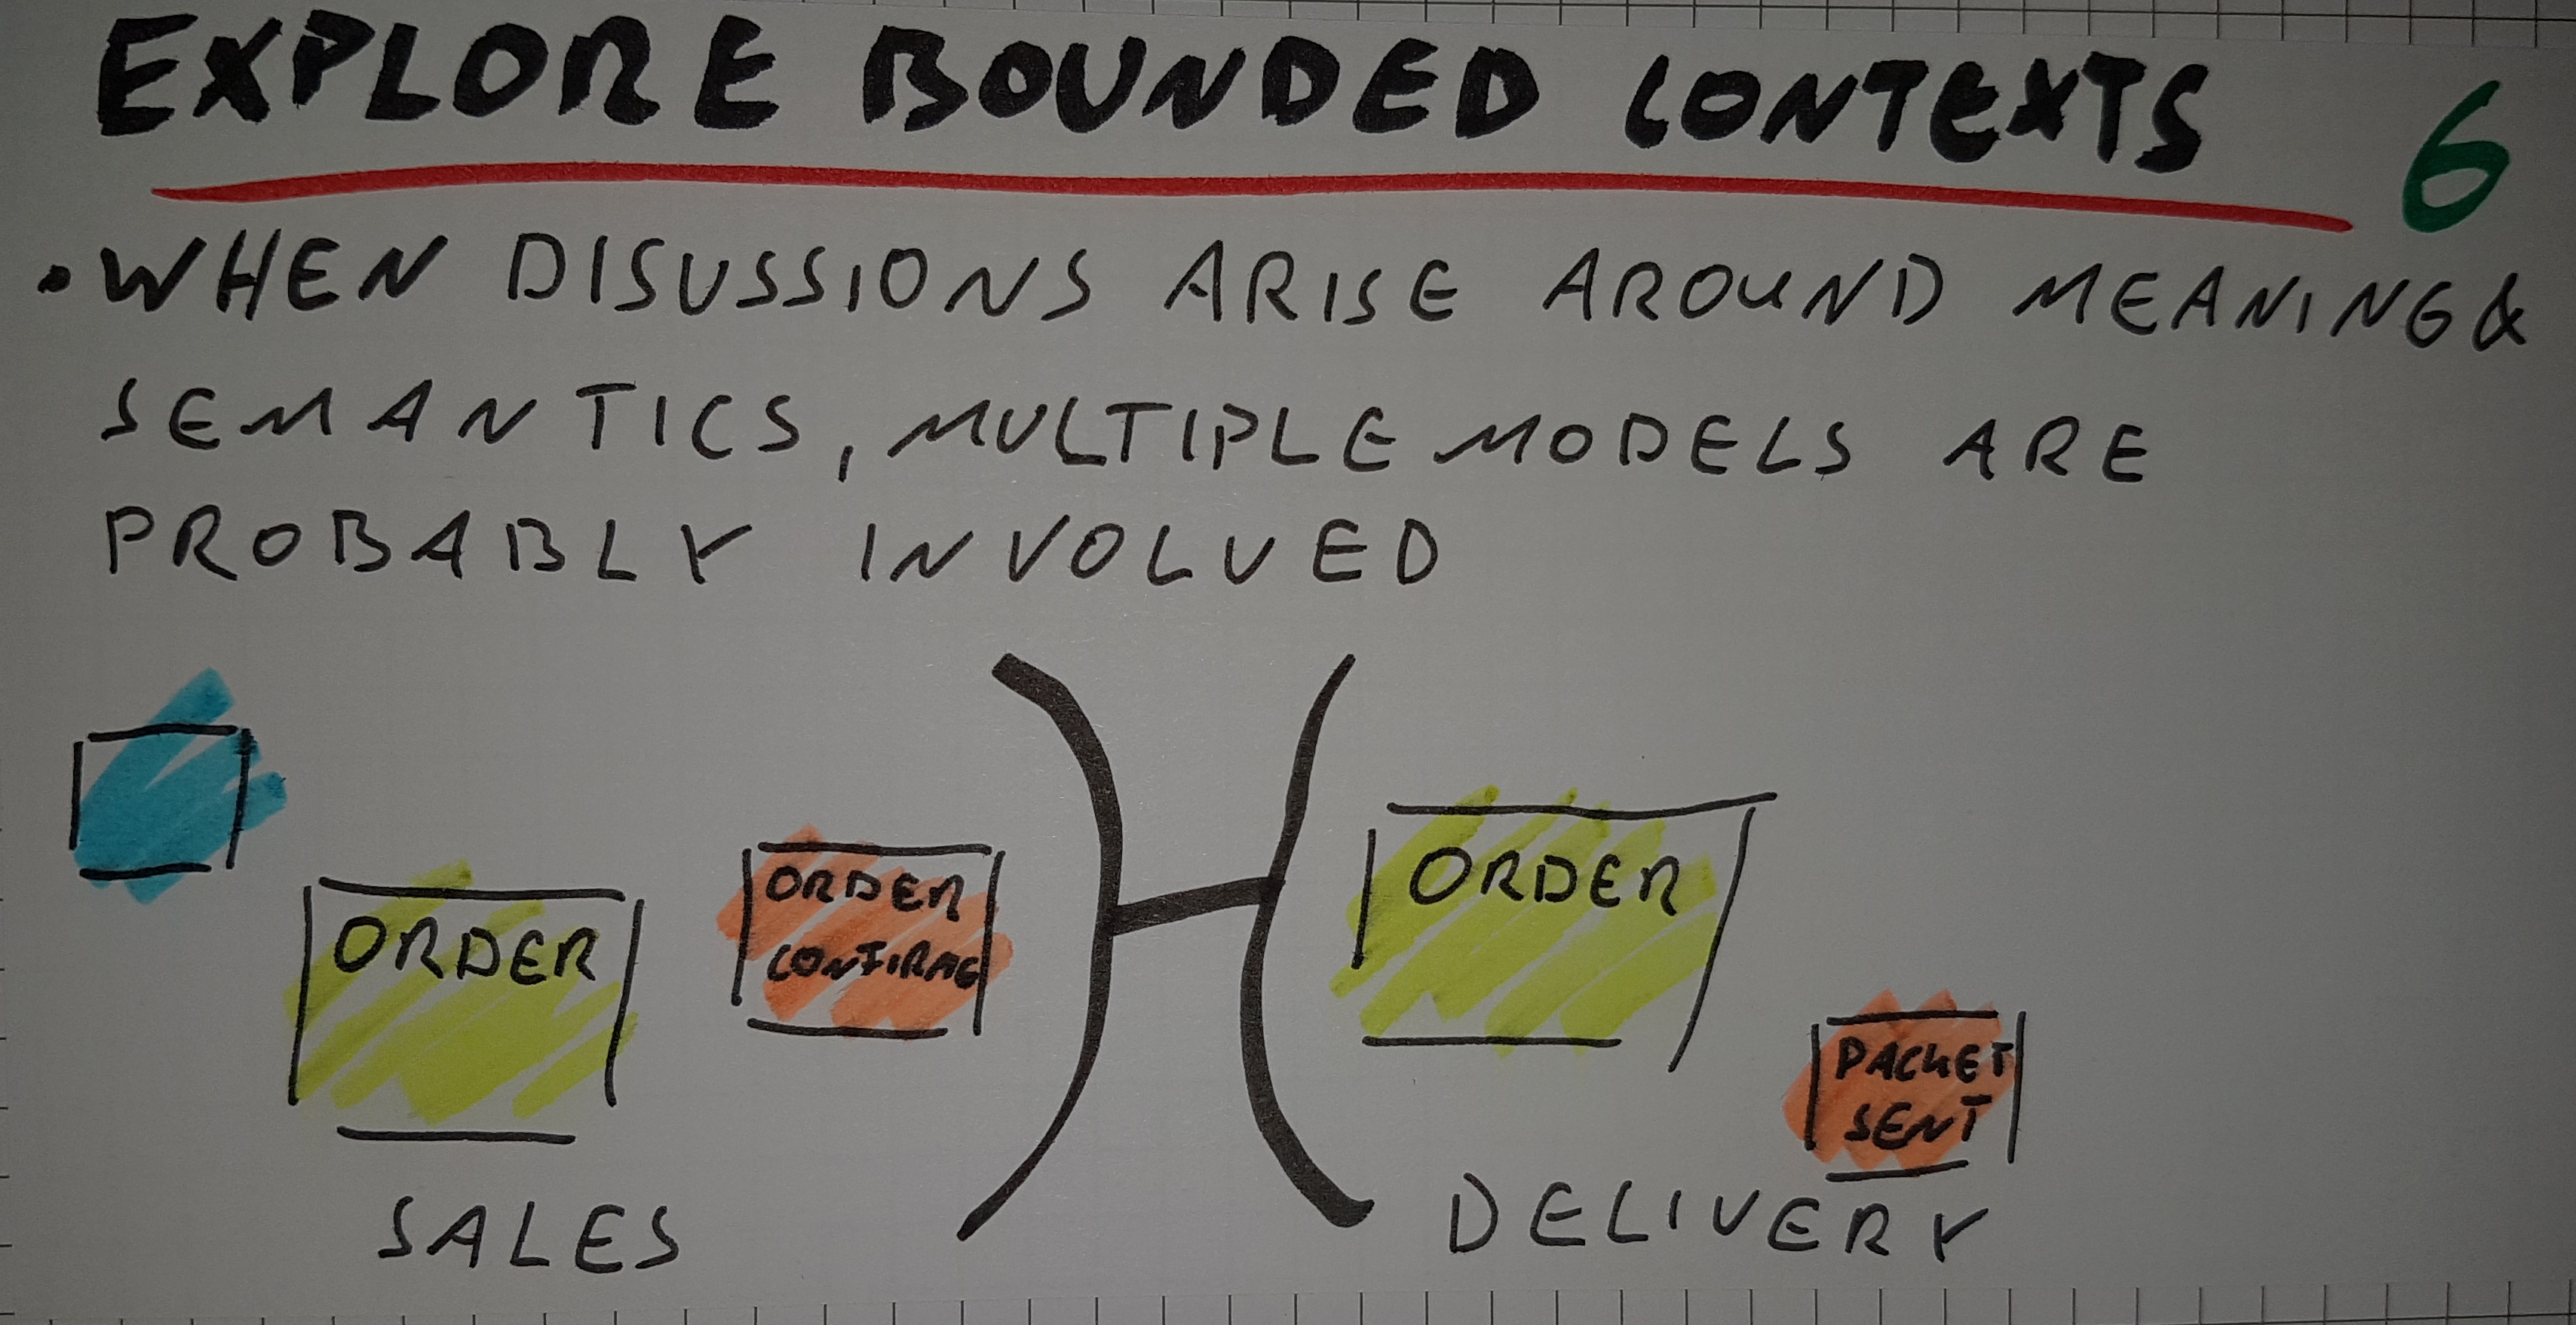 EXPLORE BOUNDED CONTEXTS 6
• WHEN DISUSSIONS ARISE AROUND MEANING &
SEMANTICS, MULTIPLE MODELS ARE
PROBABLY INVOLVED
ORDER
ORDER
CONFIRME
SALES
ORDER
PACKET
SENT
DELIVERY